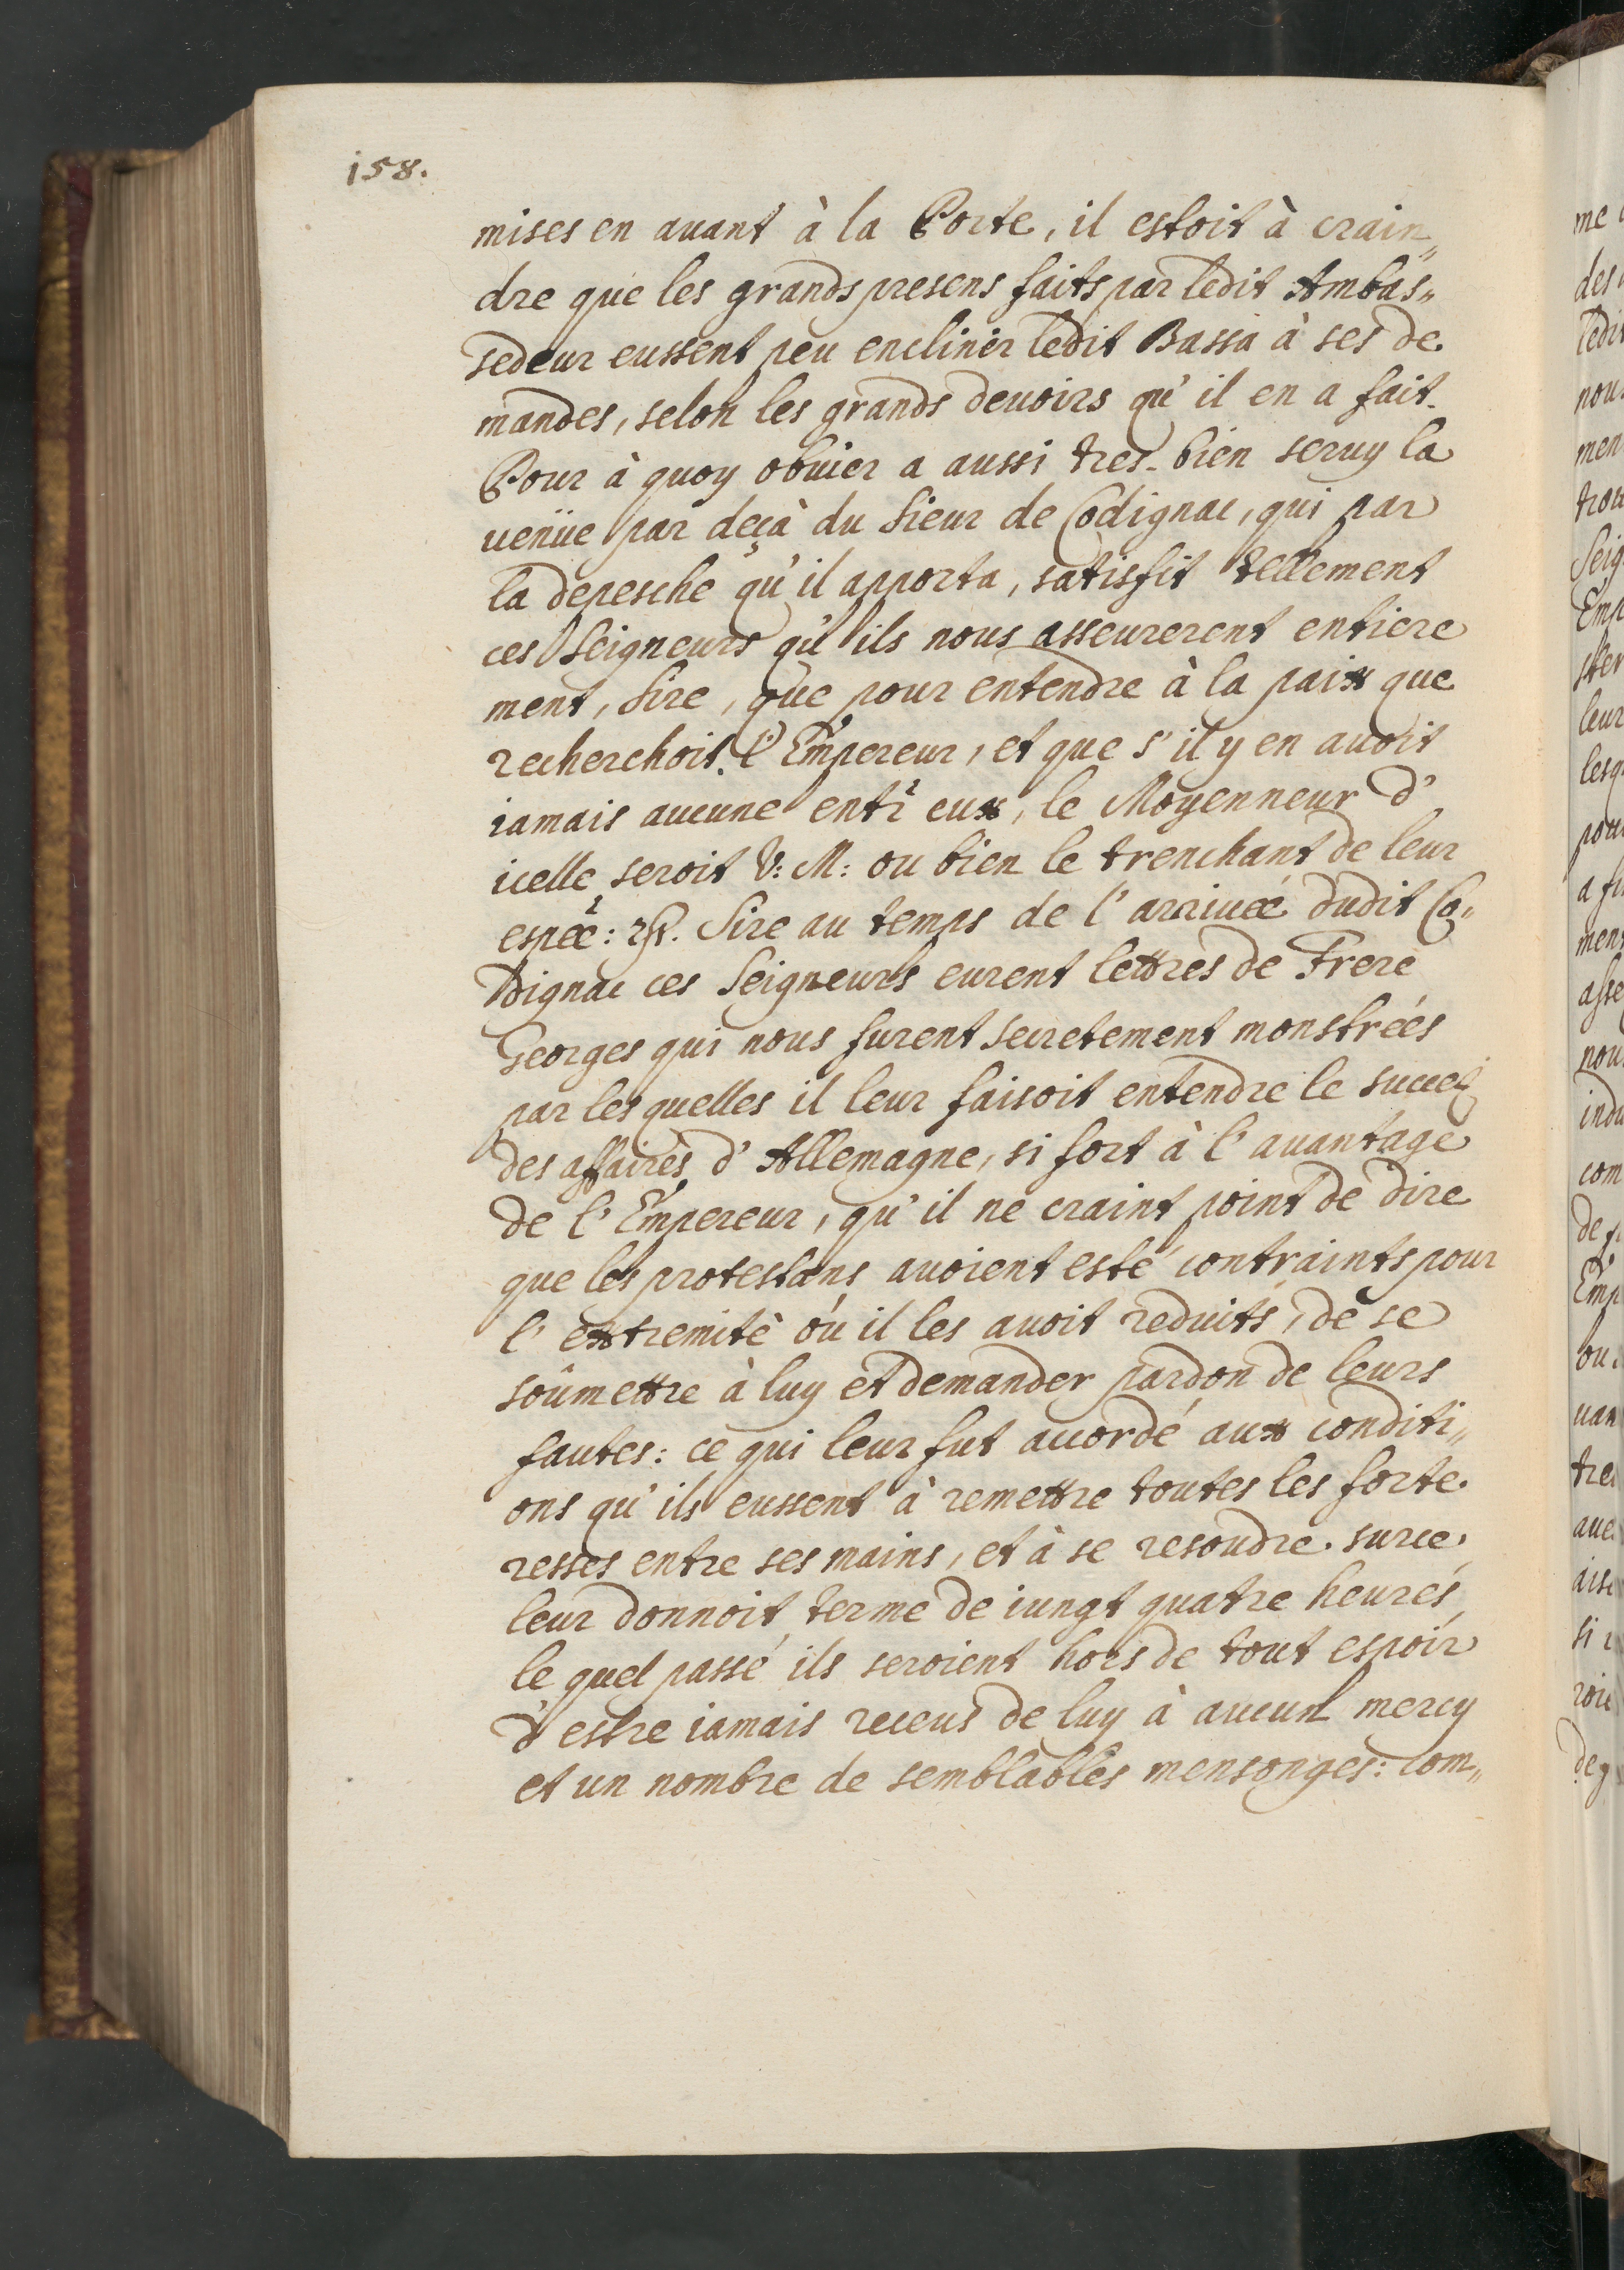 158.
mises en auant à la Porte, il estoit à crain„
dre que les grands presens faits par ledit Ambas„
sedeur eussent peu encliner ledit Bassa à ses de
mandes, selon les grands deuoirs qu'il en a fait.
Pour à quoy obuier a aussi tres-bien seruy la
uenüe par deçà du Sieur de Codignac, qui par
la depesche qu'il apporta, satisfit tellement
ces Seigneurs qu'ils nous asseurerent entiere
ment, Sire, que pour entendre à la paix que
recherchoit l'Empereur, et que s'il y en auoit
iamais aucune entr eux, le Moyenneur d'
icelle seroit V: M: ou bien le trenchant de leur
espée: Sire au temps de l'arriuée dudit Co„
dignac ces Seigneurs eurent lettres de Frere
Georges qui nous furent secretement monstrées
par les quelles il leur faisoit entendre le succez
des affaires d'Allemagne, si fort à l'auantage
de l'Empereur, qu'il ne craint point de dire
que les protestans auoient esté contraints pour
l'extremitè où il les auoit reduits, de se
soûmettre à luy et demander pardon de leurs
fautes: ce qui leur fut accordé aux conditi„
ons qu'ils eussent à remettre toutes les forte
resses entre ses mains, et à se resoudre. surce
leur donnoit terme de uingt quatre heures,
le quel passé ils seroient hors de tout espoir
d'estre iamais receus de luy à aucun mercy
et un nombre de semblables mensonges: com„